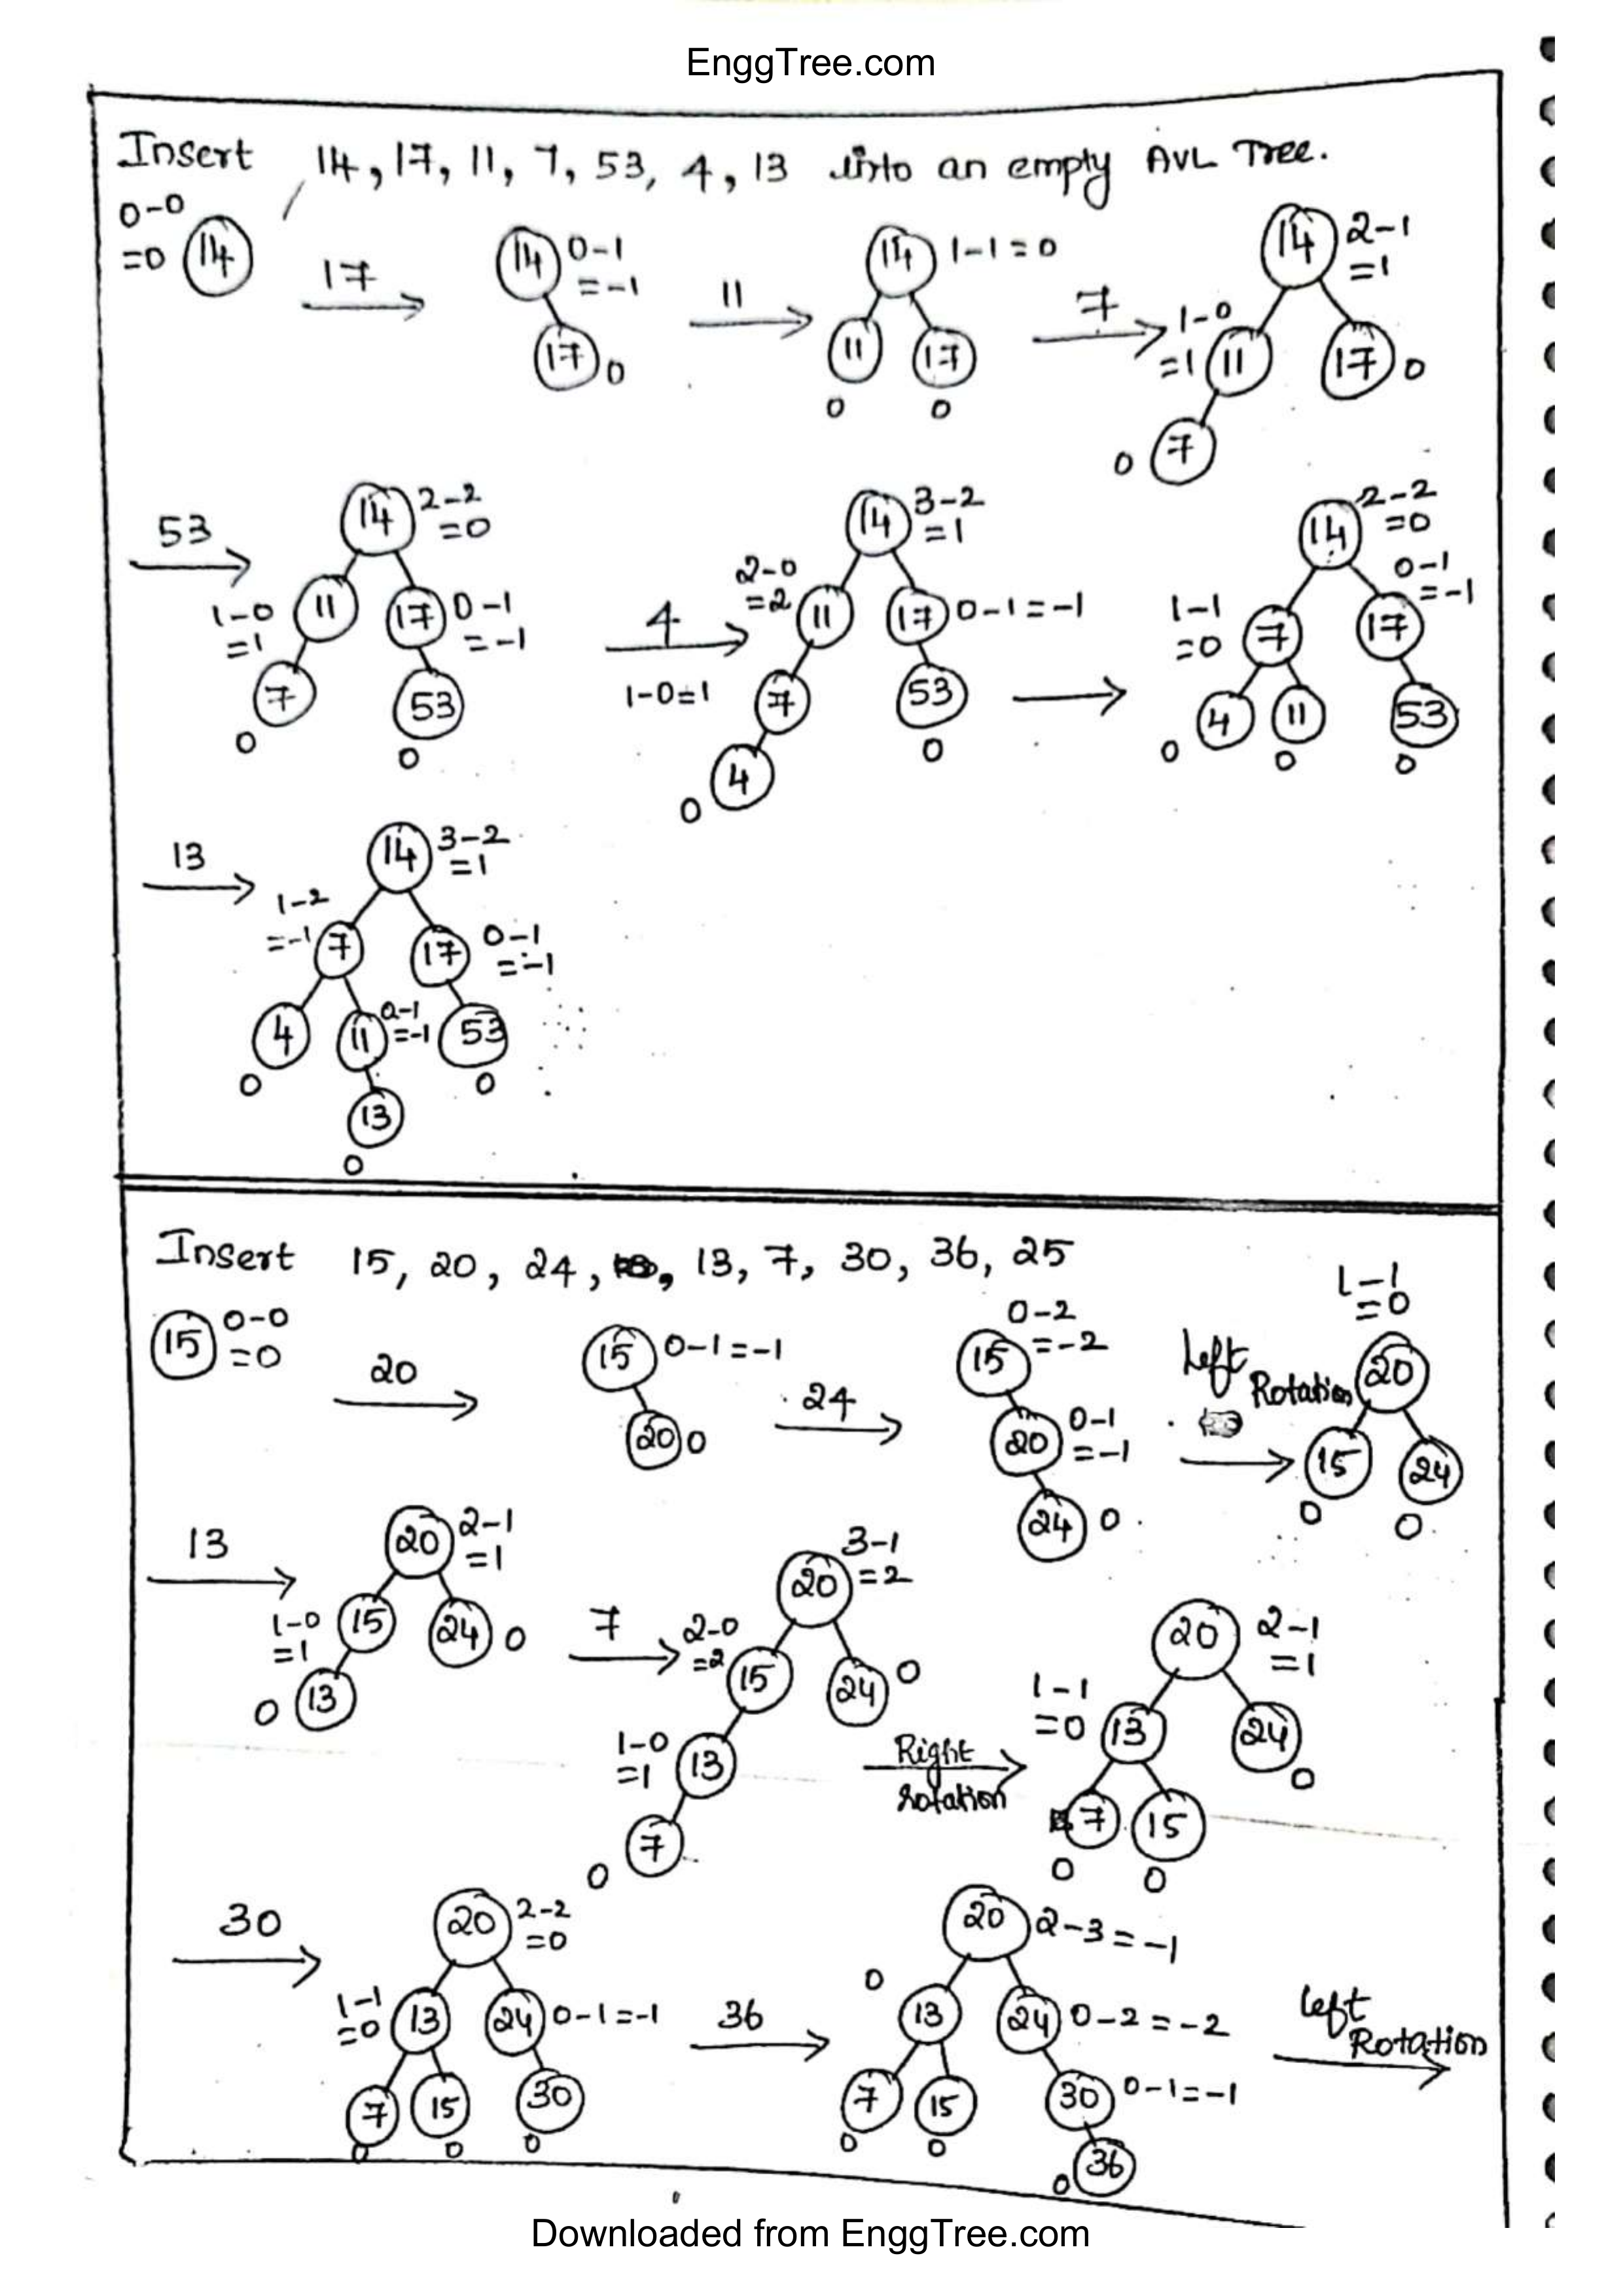 EnggTree.com
Insert 14, 17, 11, 7, 53, 4, 13 into an empty AVL Tree.
0-0
=0 14
17
14 0-1
= -1
17 0
11
14 1-1=0
11 17
0 0
7
14 2-1
=1
1-0
=1 11 17 0
0 7
53
14 2-2
=0
1-0
=1 11 17 0-1
= -1
7 53
0 0
4
1-0=1
14 3-2
=1
2-0
=2 11 17 0-1=-1
7 53
0
4
0
14 2-2
=0
1-1
=0 7 17 0-1
=-1
4 11 53
0 0 0
13
14 3-2
=1
1-2
=-1 7 17 0-1
=-1
4 11 0-1
=-1 53
0 0
13
0
Insert 15, 20, 24, 13, 7, 30, 36, 25
15 0-0
=0
20
15 0-1=-1
20 0
24
0-2
15 =-2
20 0-1
=-1
24 0
Left
Rotation
1-1
=0
20
15 24
0 0
13
20 2-1
=1
1-0
=1 15 24 0
0 13
7
3-1
20 =2
2-0
=2 15 24 0
1-0
=1 13
7
0
Right
Rotation
20 2-1
=1
1-1
=0 13 24
0
7 15
0 0
30
20 2-2
=0
1-1
=0 13 24 0-1=-1
7 15 30
0 0 0
36
20 2-3=-1
0
13 24 0-2=-2
7 15 30 0-1=-1
0 0
0 36
left
Rotation
Downloaded from EnggTree.com